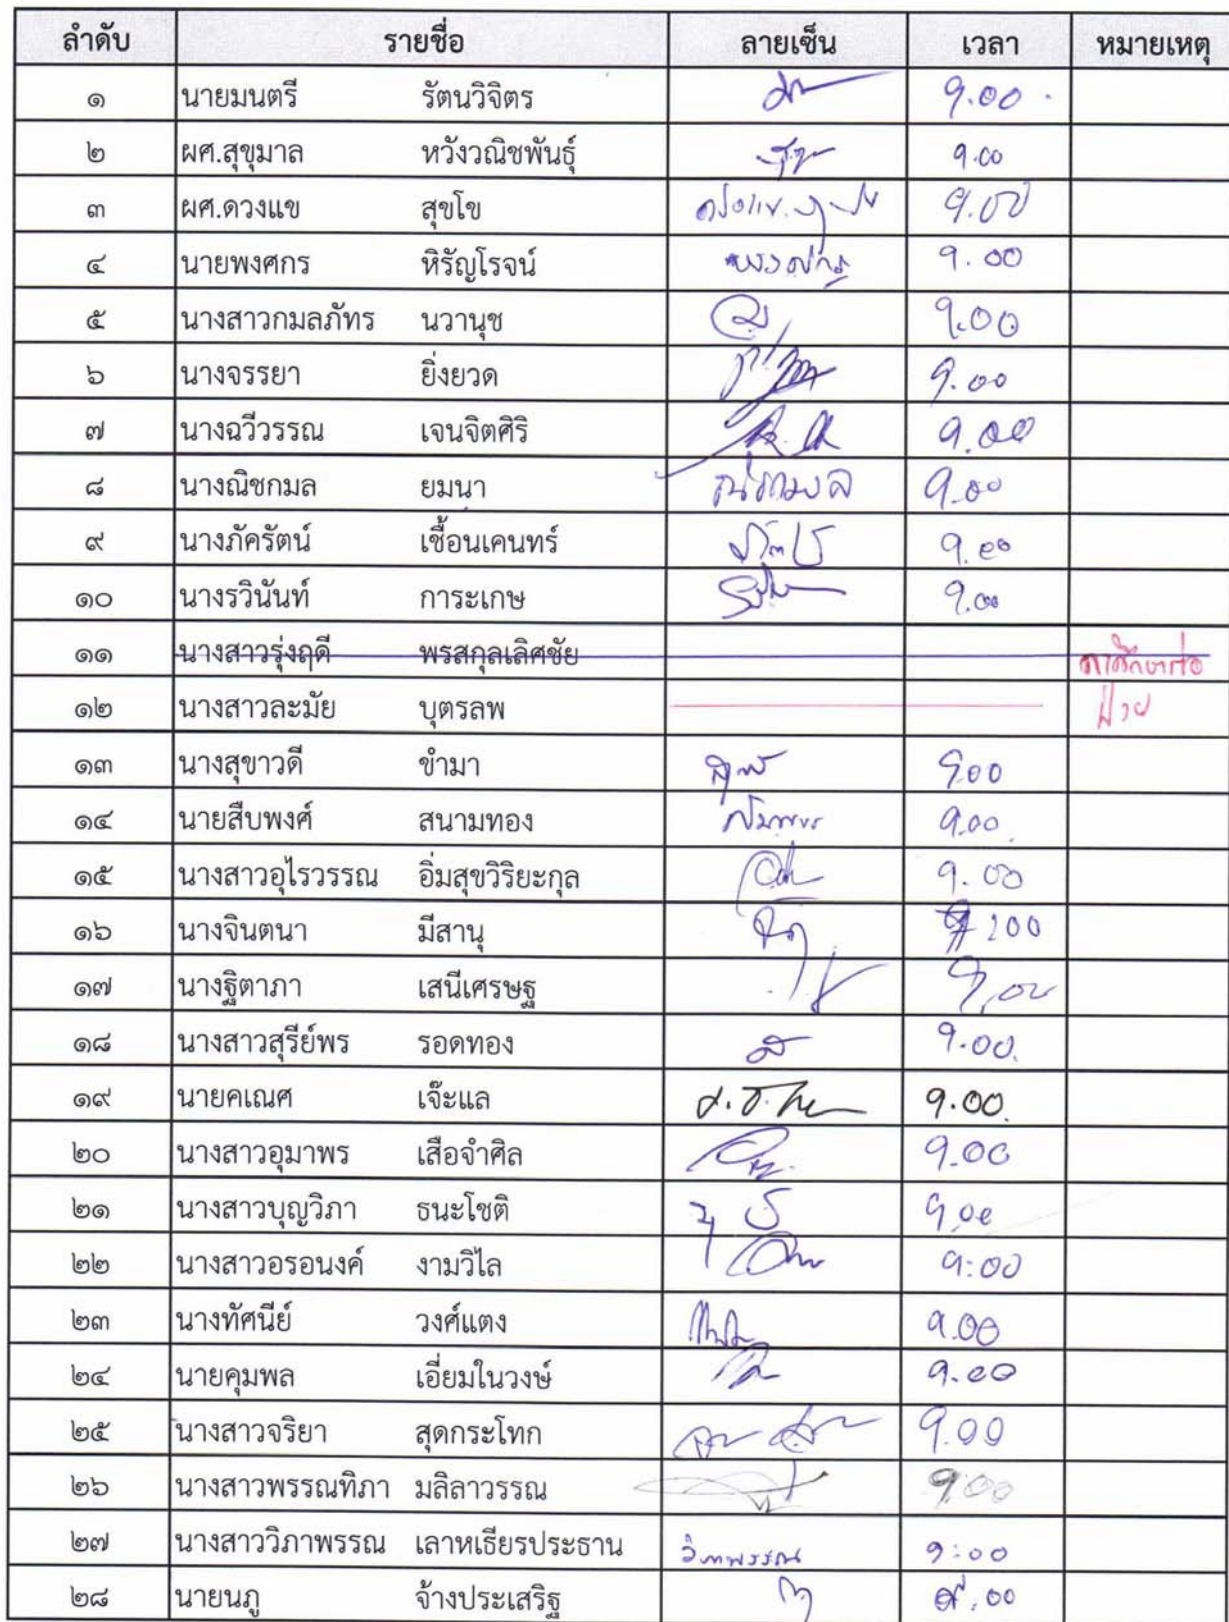 ลำดับ รายชื่อ ลายเซ็น เวลา หมายเหตุ
๑ นายมนตรี รัตนวิจิตร 9.00
๒ ผศ.สุขุมาล หวังวณิชพันธุ์ 9.00
๓ ผศ.ดวงแข สุขโข 9.00
๔ นายพงศกร หิรัญโรจน์ พงศกร 9.00
๕ นางสาวกมลภัทร นวานุช 9.00
๖ นางจรรยา ยิ่งยวด 9.00
๗ นางฉวีวรรณ เจนจิตศิริ 9.00
๘ นางณิชกมล ยมนา ณิชกมล 9.00
๙ นางภัครัตน์ เชื้อนเคนทร์ 9.00
๑๐ นางรวินันท์ การะเกษ 9.00
๑๑ นางสาวรุ่งฤดี พรสกุลเลิศชัย ลาศึกษาต่อ
๑๒ นางสาวละมัย บุตรลพ ป่วย
๑๓ นางสุขาวดี ขำมา 9.00
๑๔ นายสืบพงศ์ สนามทอง 9.00
๑๕ นางสาวอุไรวรรณ อิ่มสุขวิริยะกุล 9.00
๑๖ นางจินตนา มีสานุ
๑๗ นางฐิตาภา เสนีเศรษฐ 9.00
๑๘ นางสาวสุรีย์พร รอดทอง 9.00
๑๙ นายคเณศ เจ๊ะแล 9.00
๒๐ นางสาวอุมาพร เสือจำศิล 9.00
๒๑ นางสาวบุญวิภา ธนะโชติ 9.00
๒๒ นางสาวอรอนงค์ งามวิไล 9:00
๒๓ นางทัศนีย์ วงศ์แตง 9.00
๒๔ นายคุมพล เอี่ยมในวงษ์ 9.00
๒๕ นางสาวจริยา สุดกระโทก 9.00
๒๖ นางสาวพรรณทิภา มลิลาวรรณ 9.00
๒๗ นางสาววิภาพรรณ เลาหเธียรประธาน วิภาพรรณ 9:00
๒๘ นายนภู จ้างประเสริฐ ๙.00